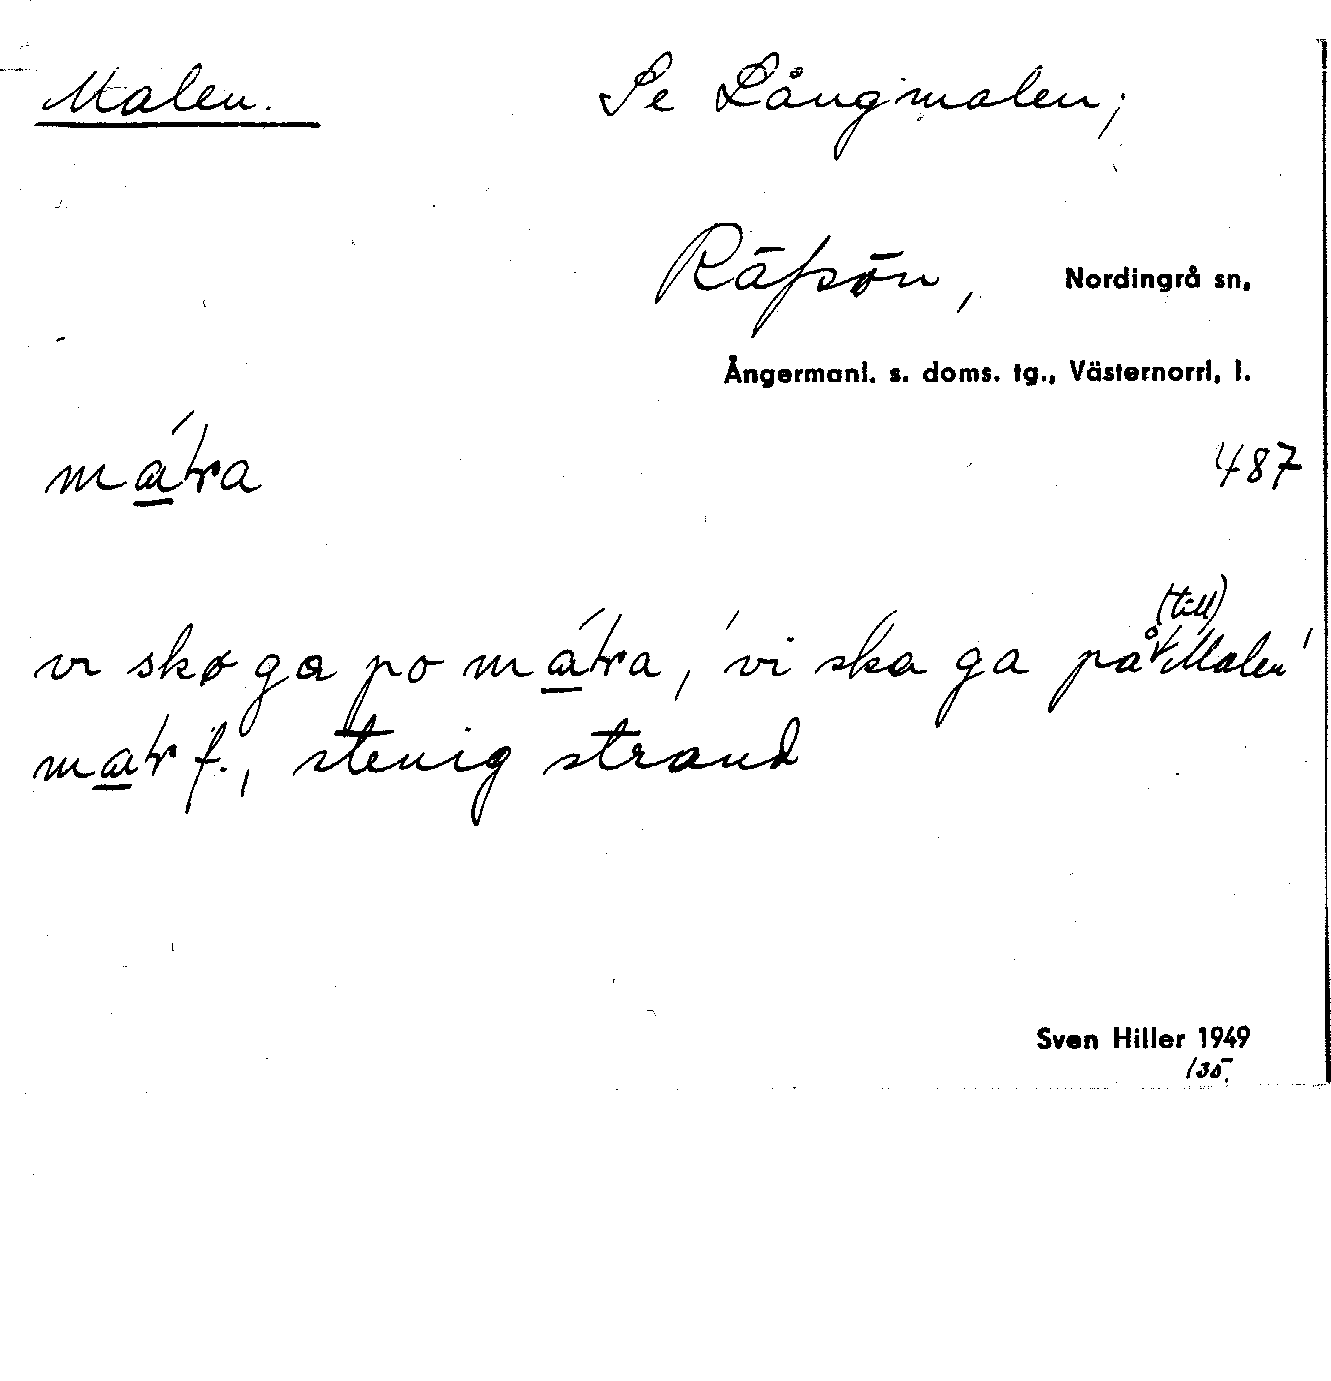 Malen. Se Långmalen;
Räfsön, Nordingrå sn,
Ångermanl. s. doms. tg., Västernorrl, l.
487
vi ska ga po, 'vi ska ga på (till) Malen'
f., stenig strand
Sven Hiller 1949
135.